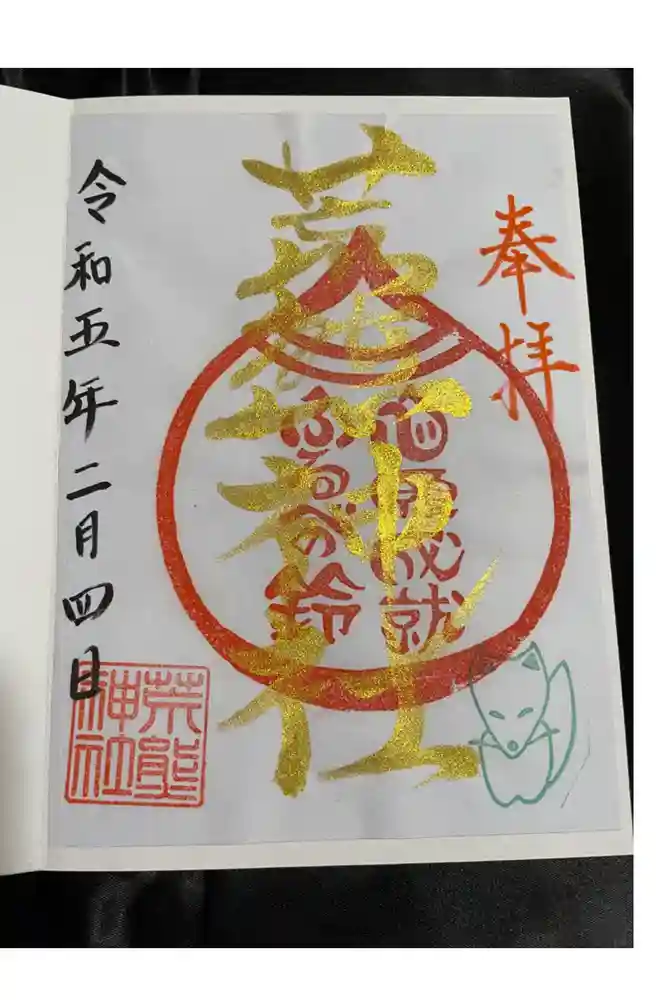 奉拝
荒熊神社
願成就
ふるべの鈴
令和五年二月四日
荒熊
神社